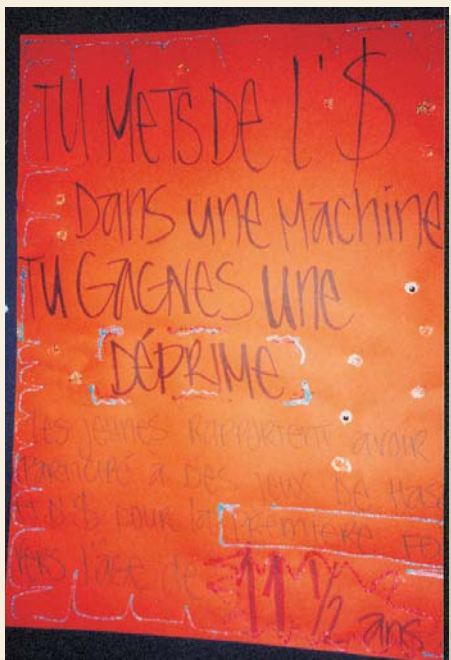 TU METS DE L'$
DANS UNE MACHINE
TU GAGNES UNE
DÉPRIME
Les jeunes RAPPORTENT avoir
PARTICIPÉ À DES jeux DE HASA
ET D'$ pour la PREMIÈRE FO
vers l'âge de 11 1/2 ans